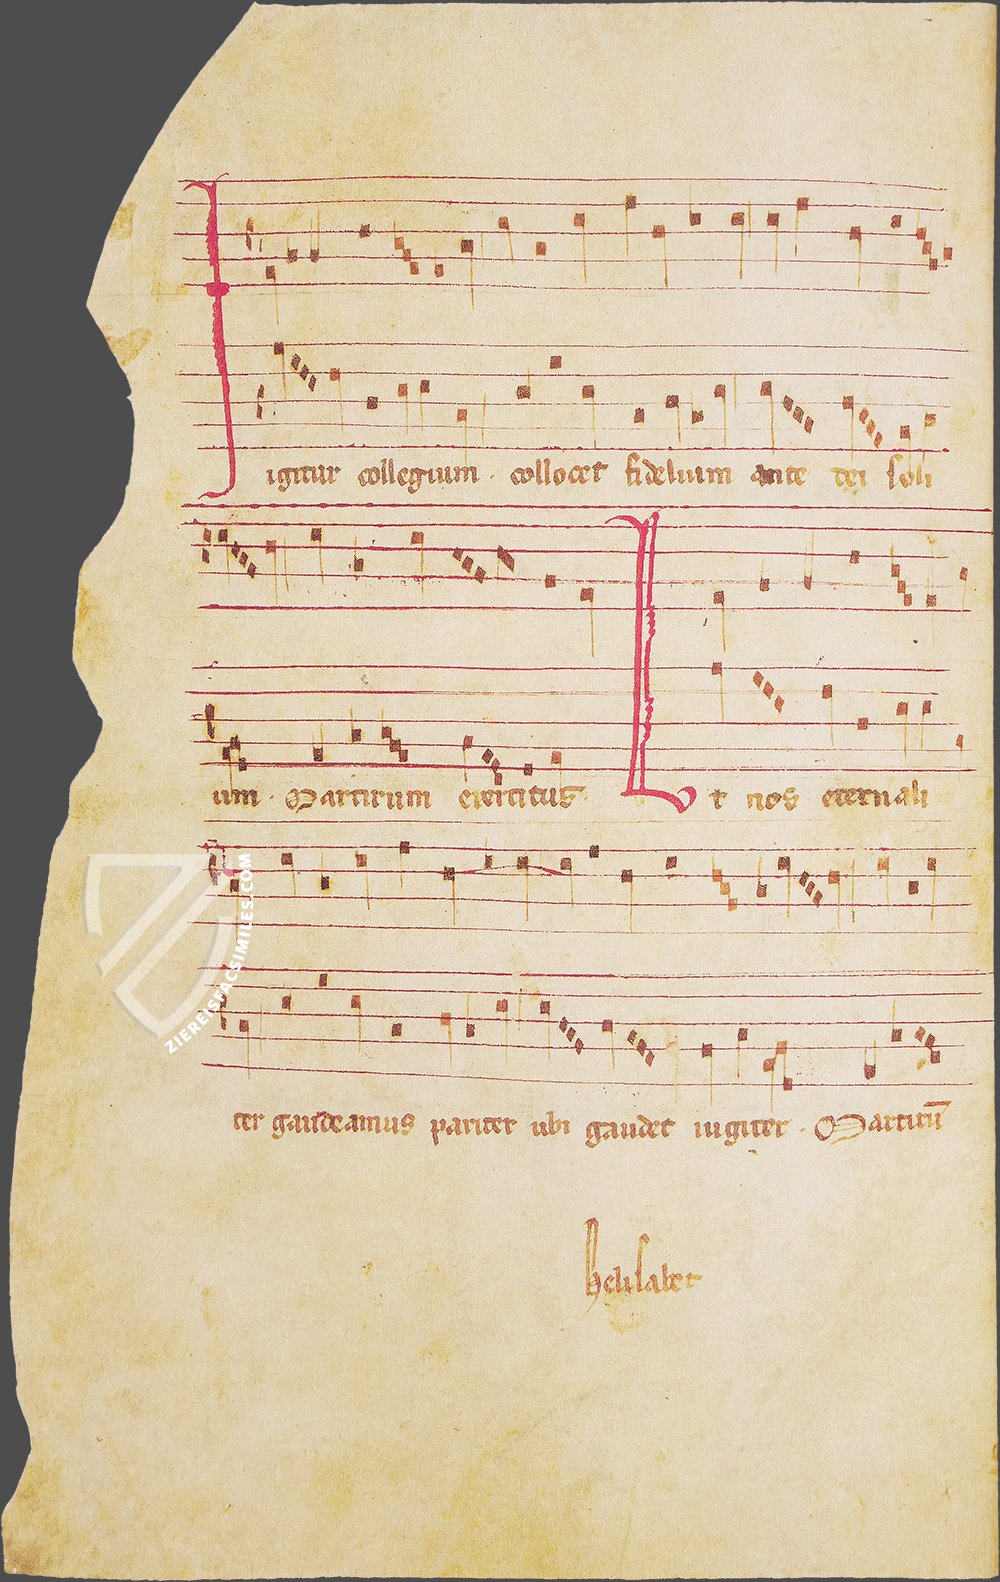 Igitur collegium · collocet fidelium ante dei soli
um · Martirum exercitus · Ut nos eternali
ter gaudeamus pariter ubi gaudet iugiter · Martirū
helisabet
ZIEREISFACSIMILES.COM